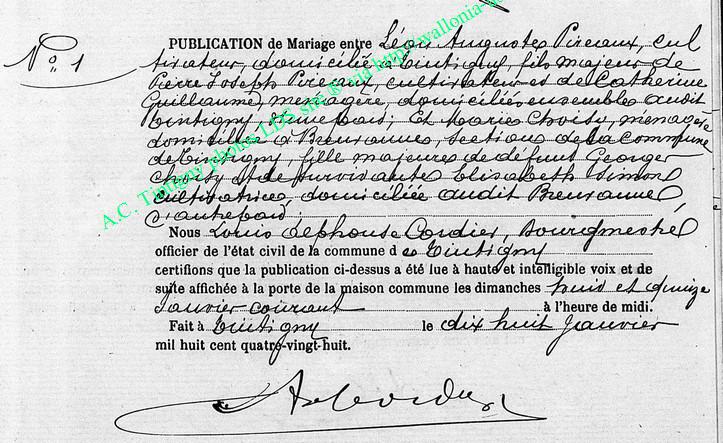 N° 1
PUBLICATION de Mariage entre Léon Auguste Pireaux, cul
tivateur, domicilié à Tintigny, fils majeur de
Pierre Joseph Pireaux, cultivateur et de Catherine
Guillaume, ménagère, domiciliés ensemble audit
Tintigny, d'une part; Et Marie Choisy, ménagère
domiciliée à Breuvanne, section de la commune
de Tintigny, fille majeure de défunt Georges
Choisy et de survivante Elisabeth Simon
cultivatrice, domiciliée audit Breuvanne
d'autre part.
Nous Louis Alphonse Cordier, Bourgmestre
officier de l'état civil de la commune d e Tintigny
certifions que la publication ci-dessus a été lue à haute et intelligible voix et de
suite affichée à la porte de la maison commune les dimanches huit et quinze
Janvier courant à l'heure de midi.
Fait à Tintigny le dix huit Janvier
mil huit cent quatre-vingt-huit.
A.C. Tintigny photos LDS site via http://wallonia